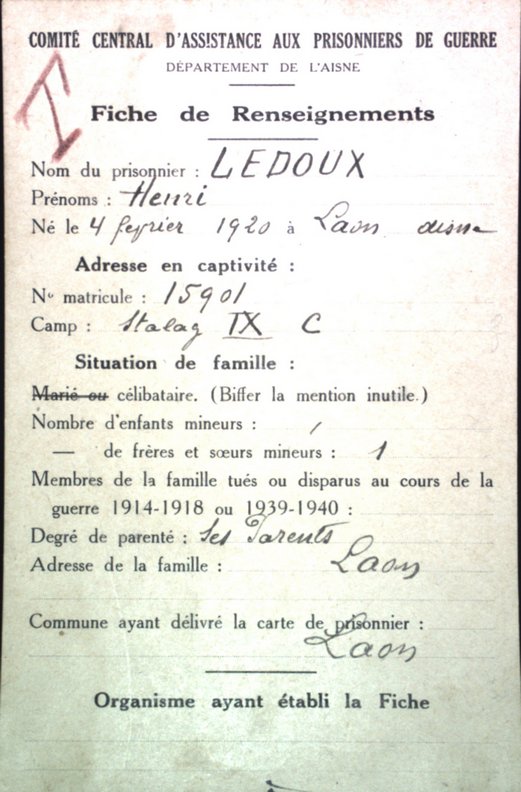 COMITÉ CENTRAL D'ASSISTANCE AUX PRISONNIERS DE GUERRE
DÉPARTEMENT DE L'AISNE
I
Fiche de Renseignements
Nom du prisonnier : LEDOUX
Prénoms : Henri
Né le 4 fevrier 1920 à Laon aisne
Adresse en captivité :
No matricule : 15901
Camp : Stalag IX C
Situation de famille :
Marié ou célibataire. (Biffer la mention inutile.)
Nombre d'enfants mineurs : /
— de frères et sœurs mineurs : 1
Membres de la famille tués ou disparus au cours de la
guerre 1914-1918 ou 1939-1940 :
Degré de parenté : Ses Parents
Adresse de la famille : Laon
Commune ayant délivré la carte de prisonnier :
Laon
Organisme ayant établi la Fiche